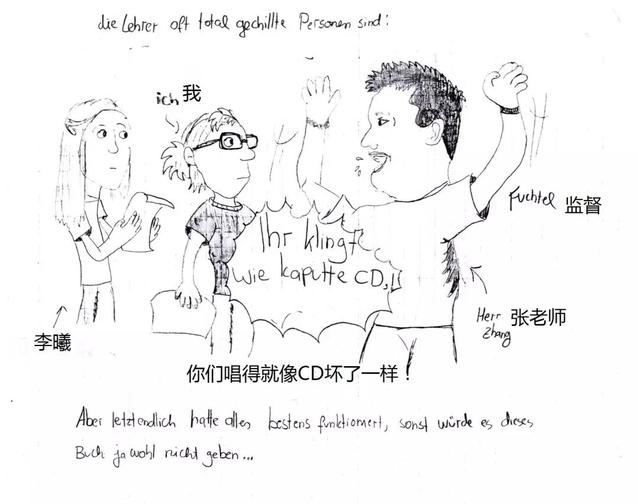 die Lehrer oft total gechillte Personen sind:
ich 我
Ihr klingt
wie kaputte CD,!!
Fuchtel 监督
Herr 张老师
Zhang
李曦
你们唱得就像CD坏了一样！
Aber letztendlich hatte alles bestens funktioniert, sonst würde es dieses
Buch ja wohl nicht geben...